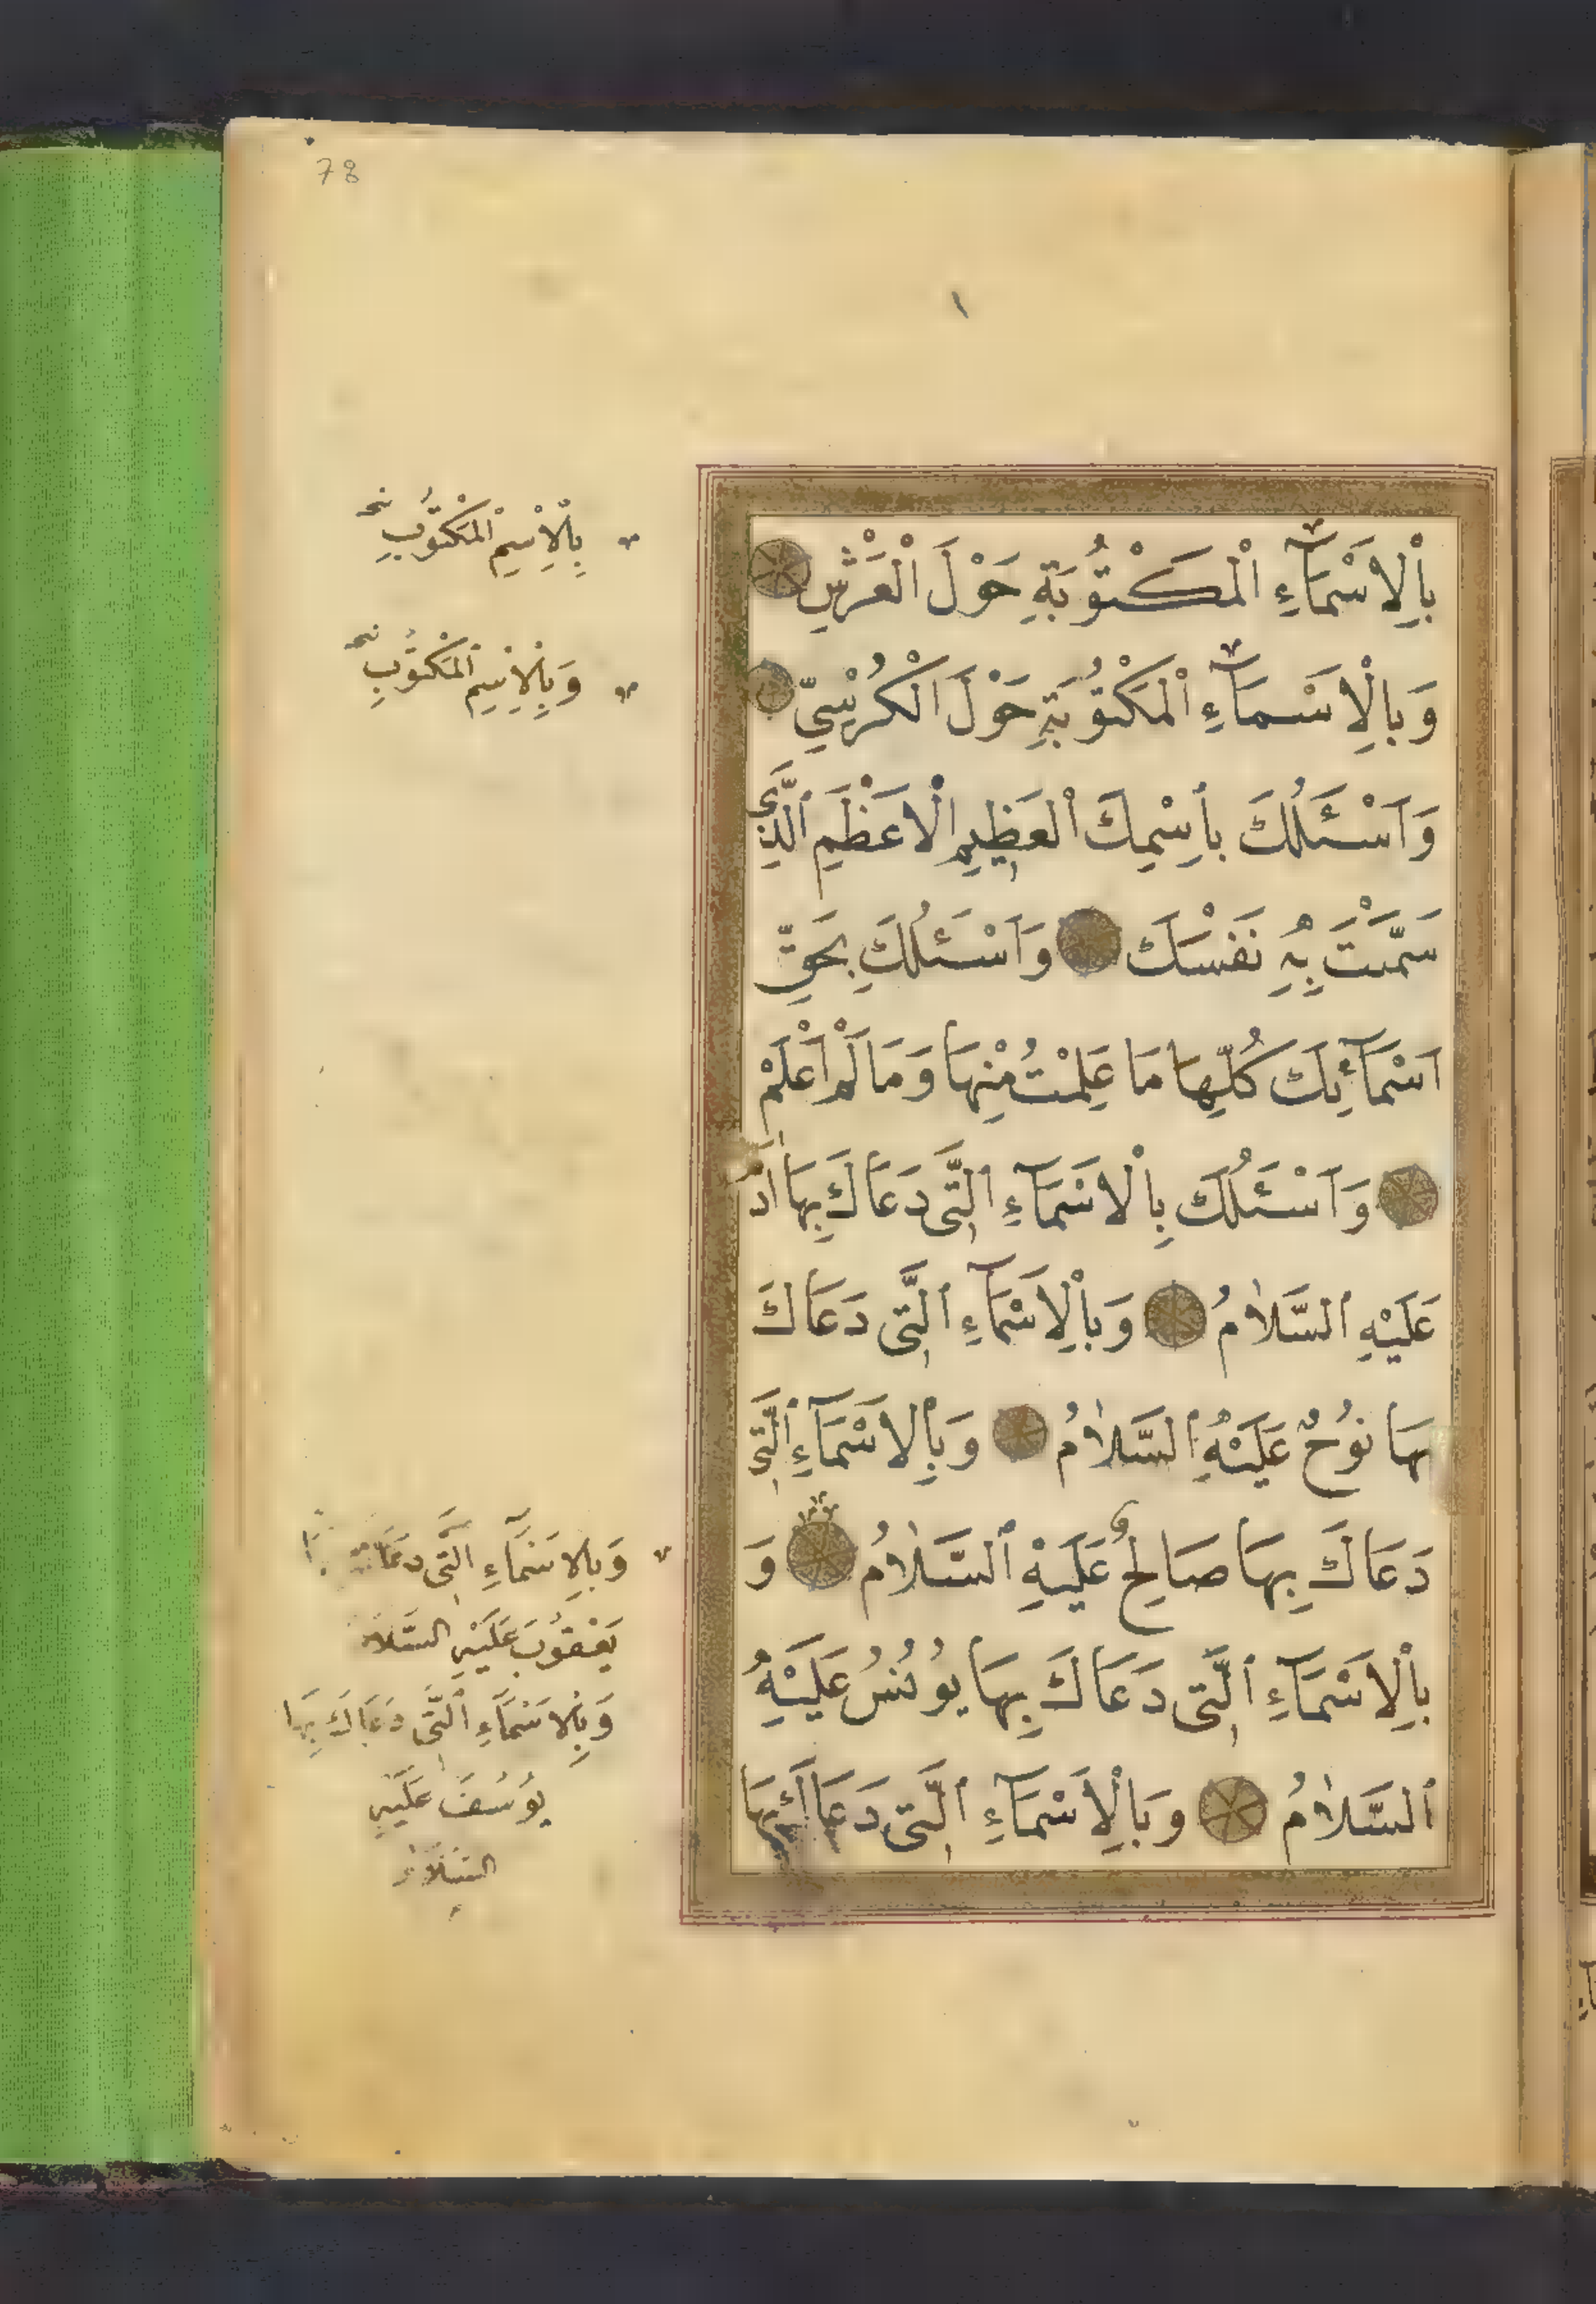 78
١
بِاْلِاَسْمَآءِ الْمَكْتُوُبَةِ حَوْلَ الْعَرْشِ
وَبِالْاَسْمَآءِ الْمَكْتُوُبَةِ حَوْلَ الْكُرْسِيِّ
وَاَسْئَلُكَ بِاسْمِكَ الْعَظِيمِ الْاَعْظَمِ الَّذِى
سَمَّيْتَ بِهِ نَفْسَكَ وَاَسْئَلُكَ بِحَقِّ
اَسْمَآئِكَ كُلِّهَا مَا عَلِمْتُ مِنْهَا وَمَا لَمْ اَعْلَمْ
وَاَسْئَلُكَ بِالْاَسْمَآءِ الَّتِى دَعَاكَ بِهَا اٰدَمُ
عَلَيْهِ السَّلَامُ وَبِالْاَسْمَآءِ الَّتِى دَعَاكَ
بِهَا نُوُحٌ عَلَيْهِ السَّلَامُ وَبِالْاَسْمَآءِ الَّتِى
دَعَاكَ بِهَا صَالِحٌ عَلَيْهِ السَّلَامُ وَ
بِالْاَسْمَآءِ الَّتِى دَعَاكَ بِهَا يُوُنُسُ عَلَيْهِ
السَّلَامُ وَبِالْاَسْمَآءِ الَّتِى دَعَاكَ بِهَا
بِالْاِسْمِ الْمَكْتُوُبِ
وَبِالْاِسْمِ الْمَكْتُوُبِ
وَبِالْاَسْمَآءِ الَّتِى دَعَاكَ
يَعْقُوُبَ عَلَيْهِ السَّلَامُ
وَبِالْاَسْمَآءِ الَّتِى دَعَاكَ بِهَا
يُوُسُفَ عَلَيْهِ
السَّلَامُ